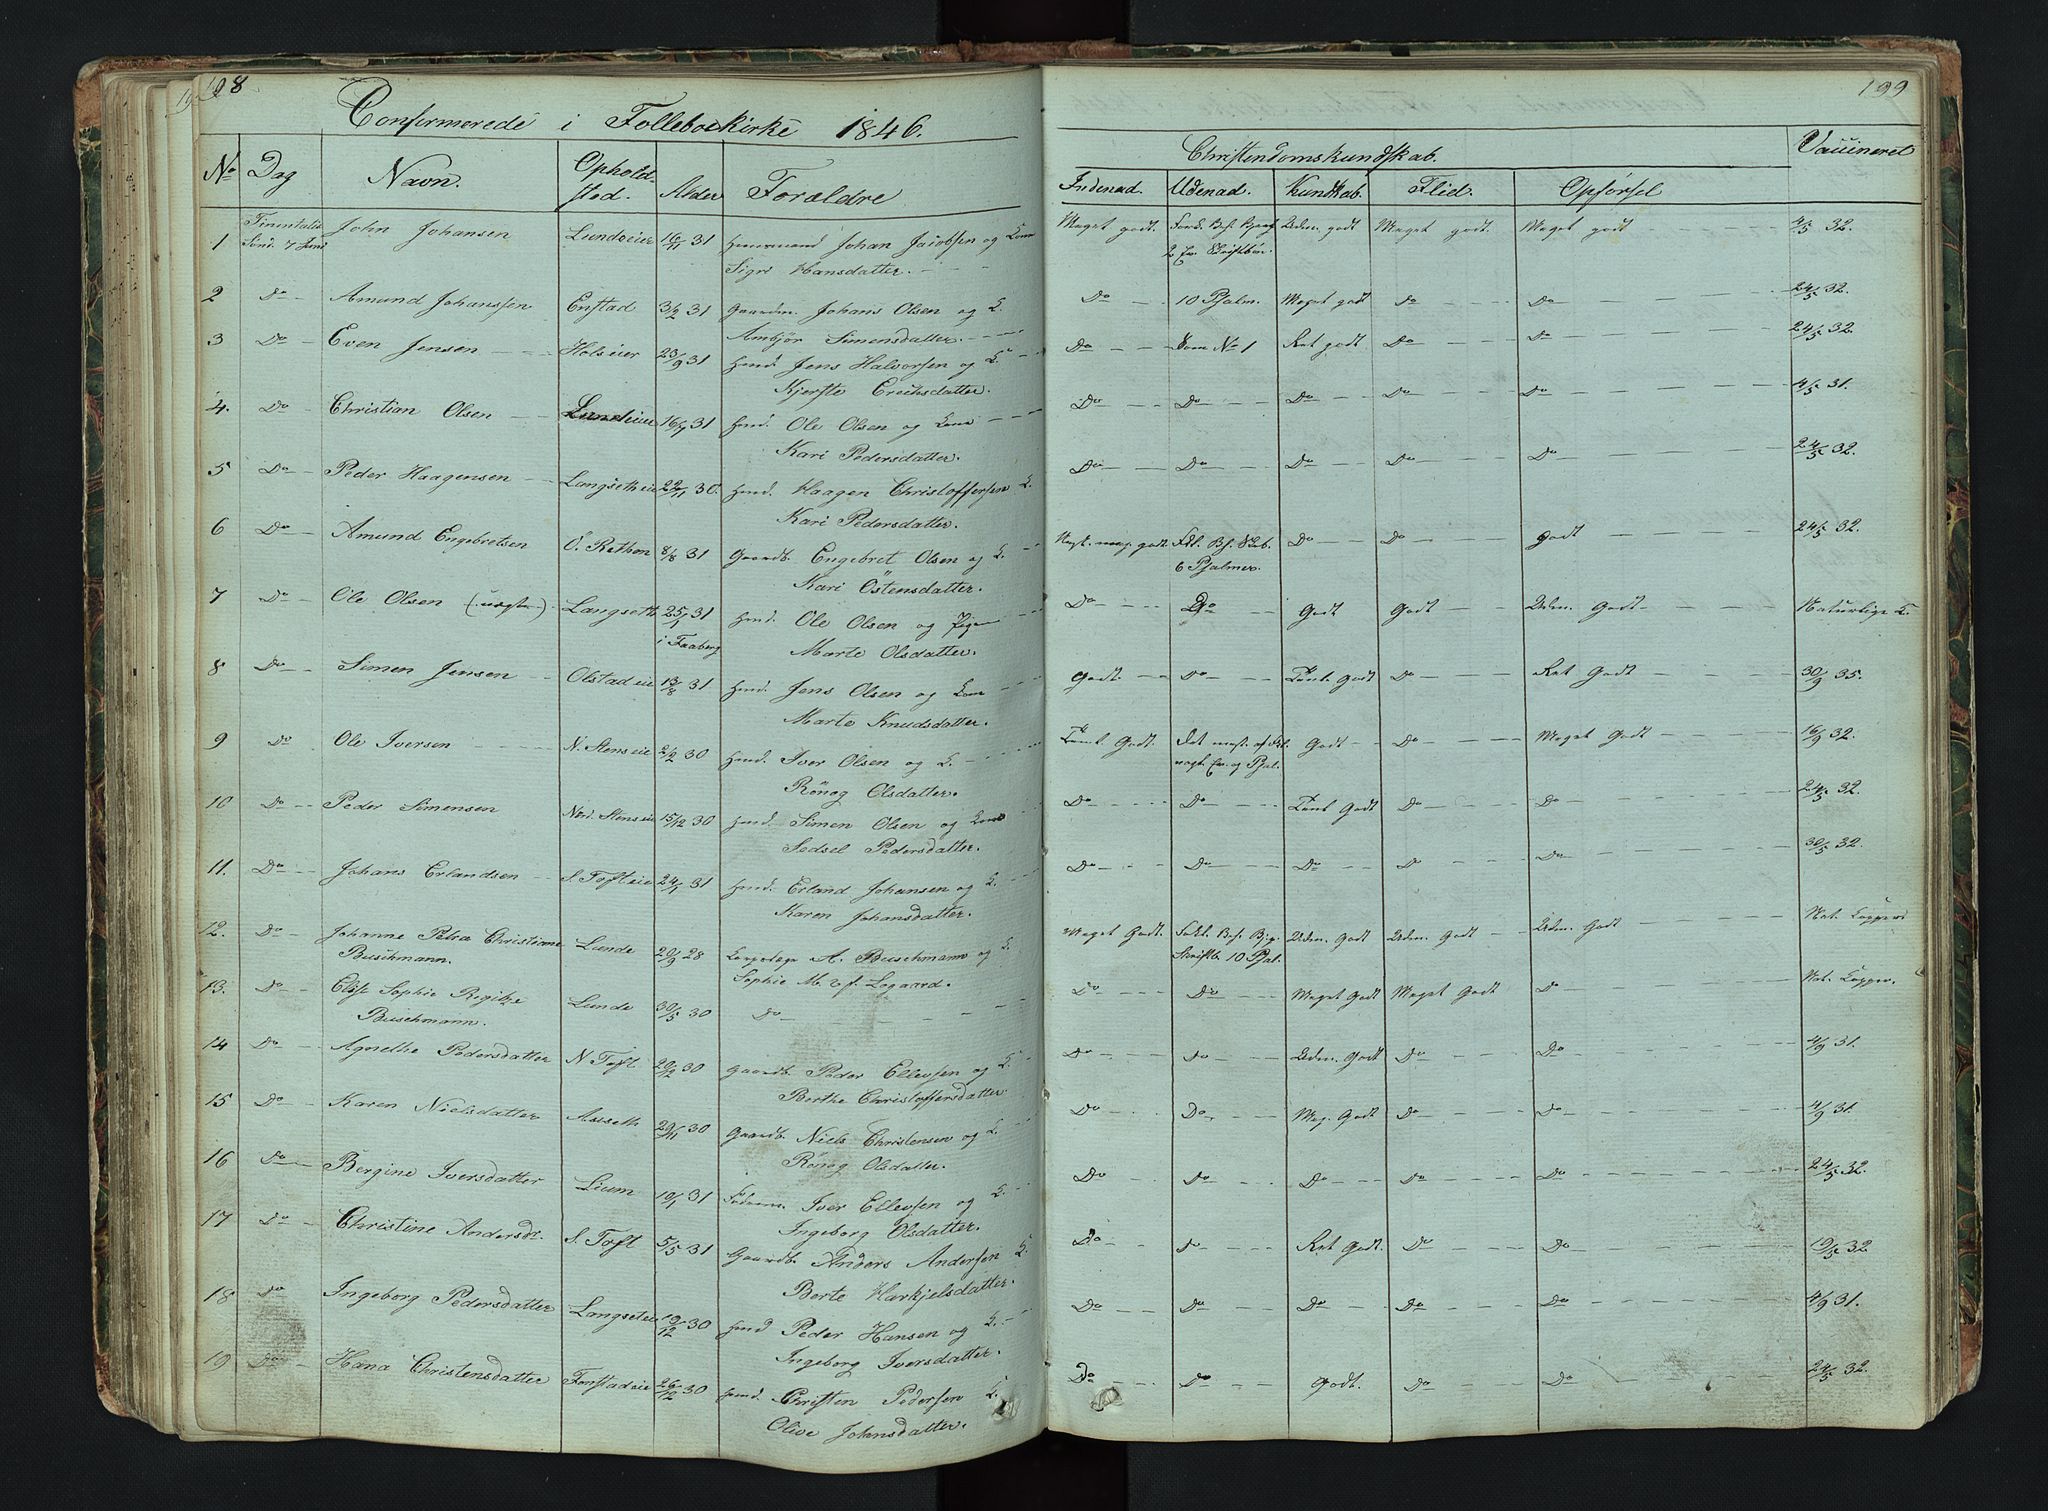 198
Confirmerede i Folleboekirke 1846.
No Dag Navn. Ophold- sted. Alder Forældre
1 Sönd. 7 Juni John Johansen Lundeeier 16/11 31 Johan Jacobsen og Kone
Sigri Hansdatter.
2 Do Amund Johanssen Enstad 3/2 31 Gaardm. Johans Olsen og K.
Ambjör Simensdatter.
3 Do Even Jensen Holseier 23/9 31 Huusm. Jens Halvorsen og K.
Kjerste Erichsdatter.
4. Do Christian Olsen Lundeeier 16/7 31 Ole Olsen og Kone
Kari Pedersdatter.
5 Do Peder Haagensen Langsetheie 22/11 30. Haagen Christoffersen K.
Kari Pedersdatter.
6 Do Amund Engebretsen Ö. Rethen 8/8 31 Gaardb. Engebret Olsen og K.
Kari Östensdatter.
7 Do Ole Olsen (uægte) Langseth 25/1 31 Ole Olsen og Pigen
i Faaberg Marte Olsdatter.
8 Do Simen Jensen Olstadeie 13/8 31 Jens Olsen og Kone
Marte Knudsdatter.
9 Do Ole Iversen N. Stenseie 2/2 30 Iver Olsen og K.
Rönog Olsdatter.
10 Do Peder Simensen Nord. Stenseie 15/12 30 Simen Olsen og Kone
Sedsel Pedersdatter.
11. Do Johans Erlandsen S. Tofteie 24/1 31 Erland Johansen og K.
Karen Johansdatter.
12. Do Johanne Petra Christianne Lunde 20/9 28 A. Buschmann og K.
Buschmann. Sophie M. f. Logaard.
13. Do Elise Sophie Regitze Lunde 30/5 30 Do
Buschmann.
14 Do Agnethe Pedersdatter N Toft 20/2 30 Gaardb. Peder Ellevsen og K.
Berthe Christoffersdatter
15 Do Karen Nielsdatter Aaseth 29/11 30 Gaardb. Niels Christensen og K.
Rönog Olsdatter.
16 Do Bergine Iversdatter Lium 10/1 31 Iver Ellevsen og K.
Ingeborg Olsdatter.
17 Do Christine Andersdr. S. Toft 5/5 31 Gaardb. Anders Andersen K.
Berte Harkjelsdatter.
18 Do Ingeborg Pedersdatter Langseteie 19/12 30 Peder Hansen og K.
Ingeborg Iversdatter.
19 Do Hana Christensdatter Forstadeie 26/12 30 Christen Pedersen K.
Olive Johansdatter.
199
Christendomskundskab. Vaccineret
Indenad. Udenad. Kundskab. Flid. Opförsel
Meget godt. Udm. godt Meget godt. Meget godt 4/5 32.
2 Ev. Skriftbön.
Do 10 Psalm. Meget godt Do Do 24/5 32.
Do Som No 1 Ret godt Do Do 24/5 32.
Do Do Do Do Do 4/5 31.
Do Do Do Do Do 24/5 32.
Næst. meg. godt Do Do Godt 24/5 32.
6 Psalmer.
Do Do Godt Godt Udm. Godt Naturlige K.
Godt. Do Temt. Godt Do Ret Godt 30/9 35.
Temt. Godt. Det mest. af Godt Do Meget Godt 16/9 32.
nogl. Ev. og Psal.
Do Do Temt. Godt Do Do 24/5 32.
Do Do Do Do Do 30/5 32.
Meget Godt. Udm. Godt Udm. Godt Udm. Godt Nat. Kopper
Skriftb. 10 Psal.
Do Do Meget Godt Meget Godt Do Nat. Kopper.
Do Do Udm. Godt Do Do 4/9 31.
Do Do Meg. Godt Do Do 4/9 31.
Do Do Do Do Do 24/5 32.
Do Do Ret Godt. Do Do 19/5 32
Do Do Do Do Do 4/9 31.
Do Do Godt. Do Do 24/5 32.